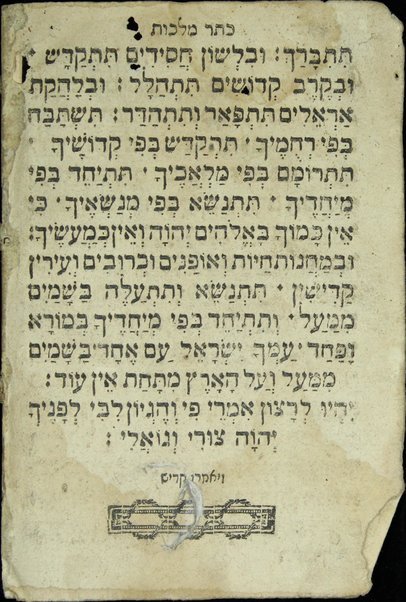 כתר מלכות
תִּתְבָּרַךְ׃ וּבִלְשׁוֹן חֲסִידִים תִּתְקַדֵּשׁ ·
וּבְקֶרֶב קְדוֹשִׁים תִּתְהַלָּל׃ וּבְלַהֲקַת
אַרְאֵלִים תִּתְפָּאַר וְתִתְהַדָּר׃ תִּשְׁתַּבַּח
בְּפִי רְחֻמֶיךָ · תְּהֻקְדַּשׁ בְּפִי קְדוֹשֶׁיךָ ·
תִּתְרוֹמָם בְּפִי מַלְאָכֶיךָ · תִּתְיַחֵד בְּפִי
מְיַחֲדֶיךָ · תִּתְנַשֵּׂא בְּפִי מְנַשְּׂאֶיךָ · כִּי
אֵין כָּמוֹךָ בָאֱלֹהִים יְהֹוָה וְאֵין כְּמַעֲשֶׂיךָ׃
וּבְמַחֲנוֹת חַיּוֹת וְאוֹפַנִּים וּכְרוּבִים וְעִירִין
קַדִּישִׁין · תִּתְנַשֵּׂא וְתִתְעַלֶּה בַּשָּׁמַיִם
מִמַּעַל · וְתִתְיַחֵד בְּפִי מְיַחֲדֶיךָ בְּמוֹרָא
וָפַחַד · עַמְּךָ יִשְׂרָאֵל עַם אֶחָד · בַּשָּׁמַיִם
מִמַּעַל וְעַל הָאָרֶץ מִתָּחַת אֵין עוֹד׃
יִהְיוּ לְרָצוֹן אִמְרֵי פִי וְהֶגְיוֹן לִבִּי לְפָנֶיךָ
יְהֹוָה צוּרִי וְגוֹאֲלִי׃
ויאמרו קדיש